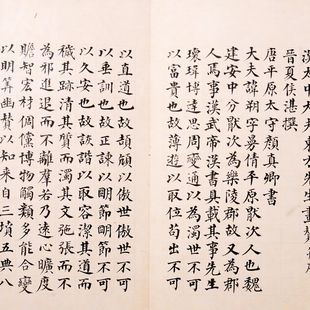 漢太中大夫東方先生畫贊并序
晉夏侯湛撰
唐平原太守顏真卿書
大夫諱朔字曼倩平原厭次人也魏
建安中分厭次為樂陵郡故又為郡
人焉事漢武帝漢書具載其事先生
瓌瑋博達思周變通以為濁世不可
以富貴也故薄遊以取位苟出不可
以直道也故頡頏以傲世傲世不可
以垂訓也故正諫以明節明節不可
以久安也故詼諧以取容潔其道而
穢其跡清其質而濁其文弛張而不
為邪進退而不離羣若乃遠心曠度
贍智宏材倜儻博物觸類多能合變
以明筭幽贊以知來自三墳五典八